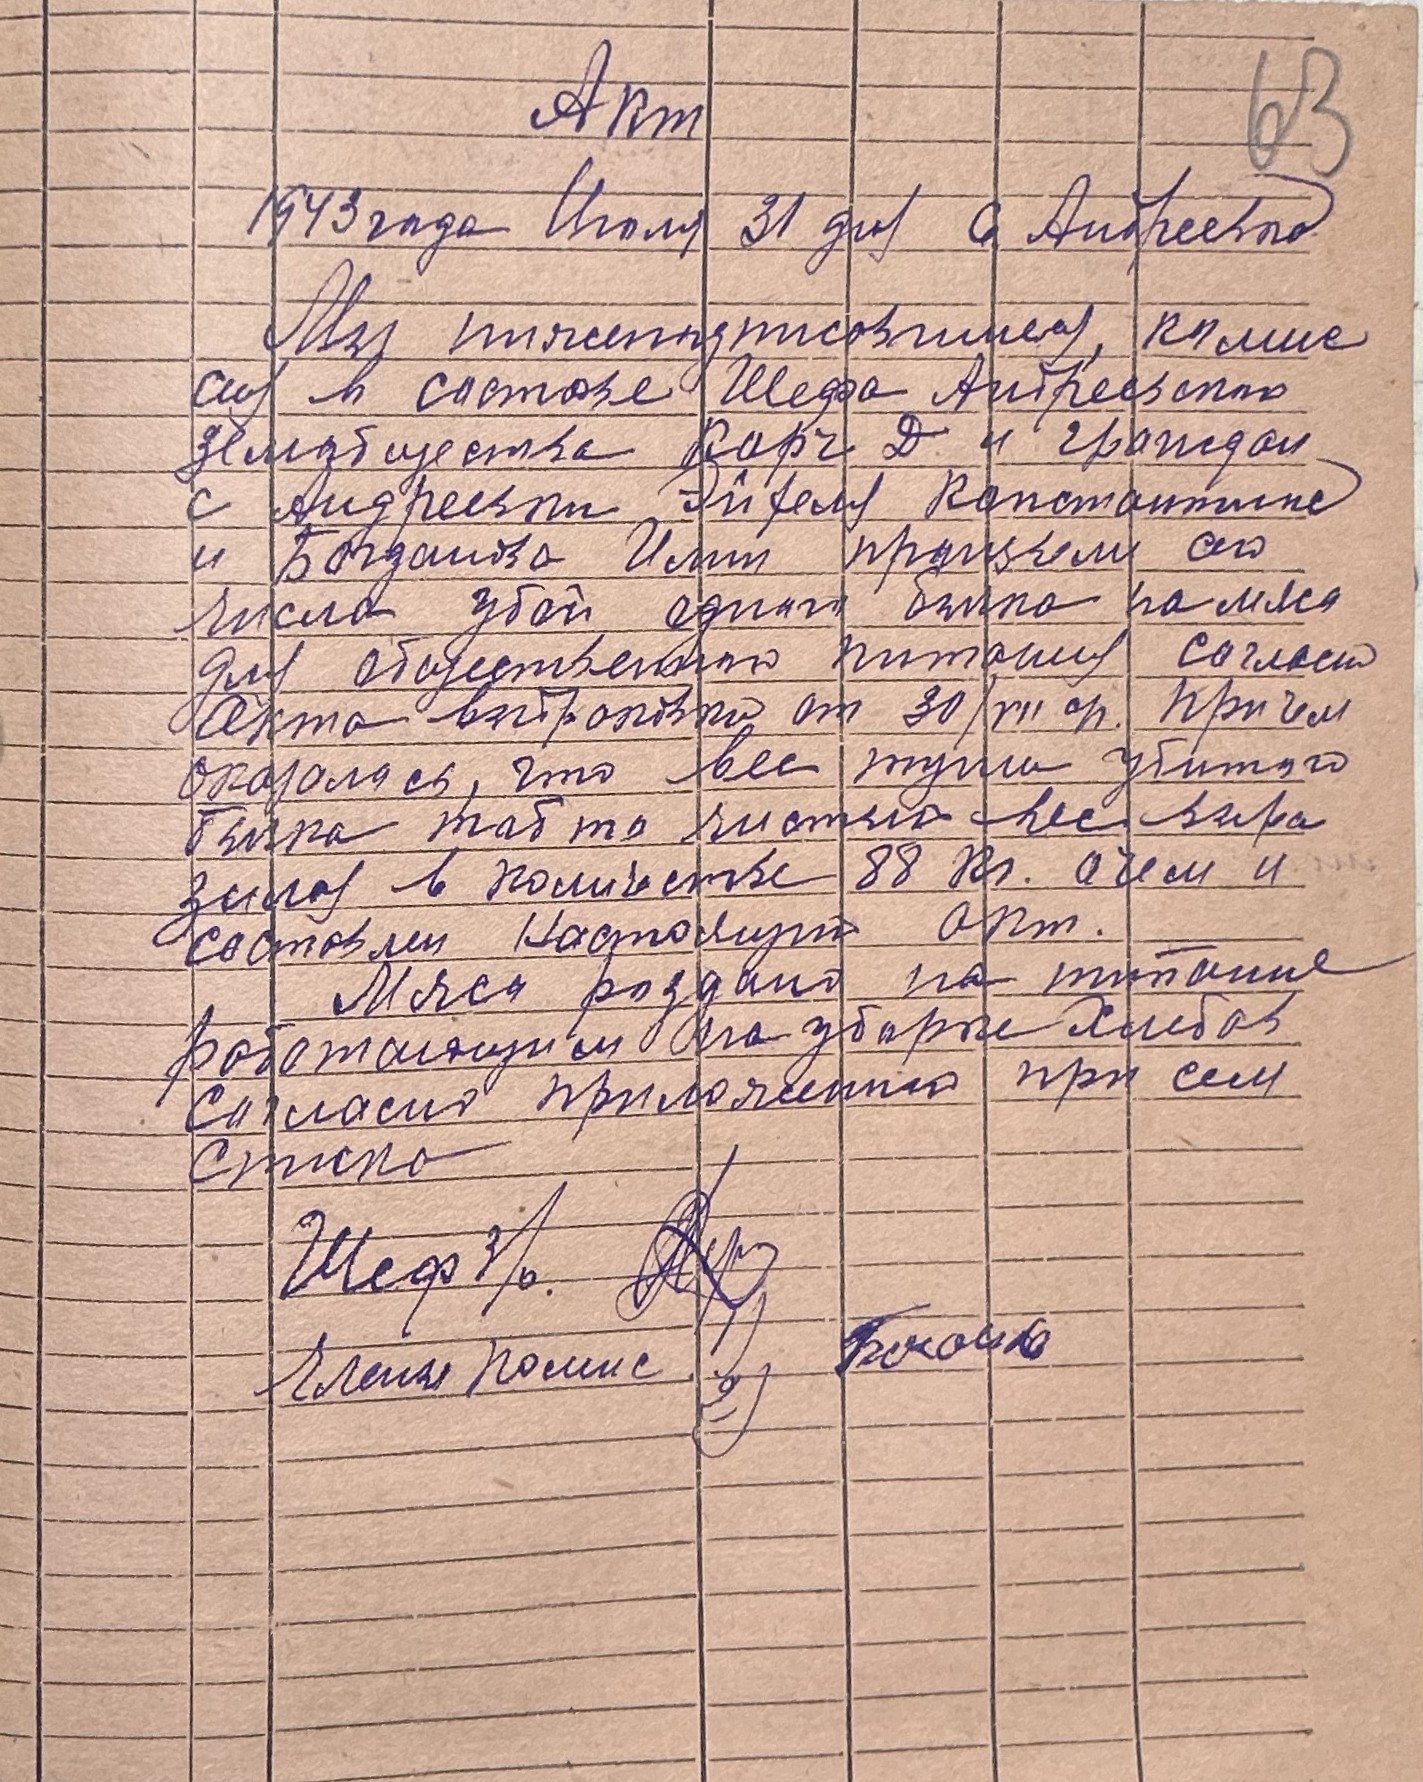 63
Акт
1943 года Июля 31 дня с Андреевка
Мы нижеподписавшиеся, комис
сия в составе Шефа Андреевского
Земобщества Карч Д. и граждан
с Андреевки Эйхеля Константине
и Богданова Или произвели сего
числа убой одного бычка на мяса
для общественного питания согласно
Акта выбраковки от 30/VII ср. Причем
оказалась, что вес туши убитого
бычка чистый вес выра
зилась в количестве 88 кг. о чем и
составлен настоящий акт.
Мяса раздано на питание
работающим на уборке хлебов
согласно приложенного при сем
списка
Шеф з/о.
Члены комис